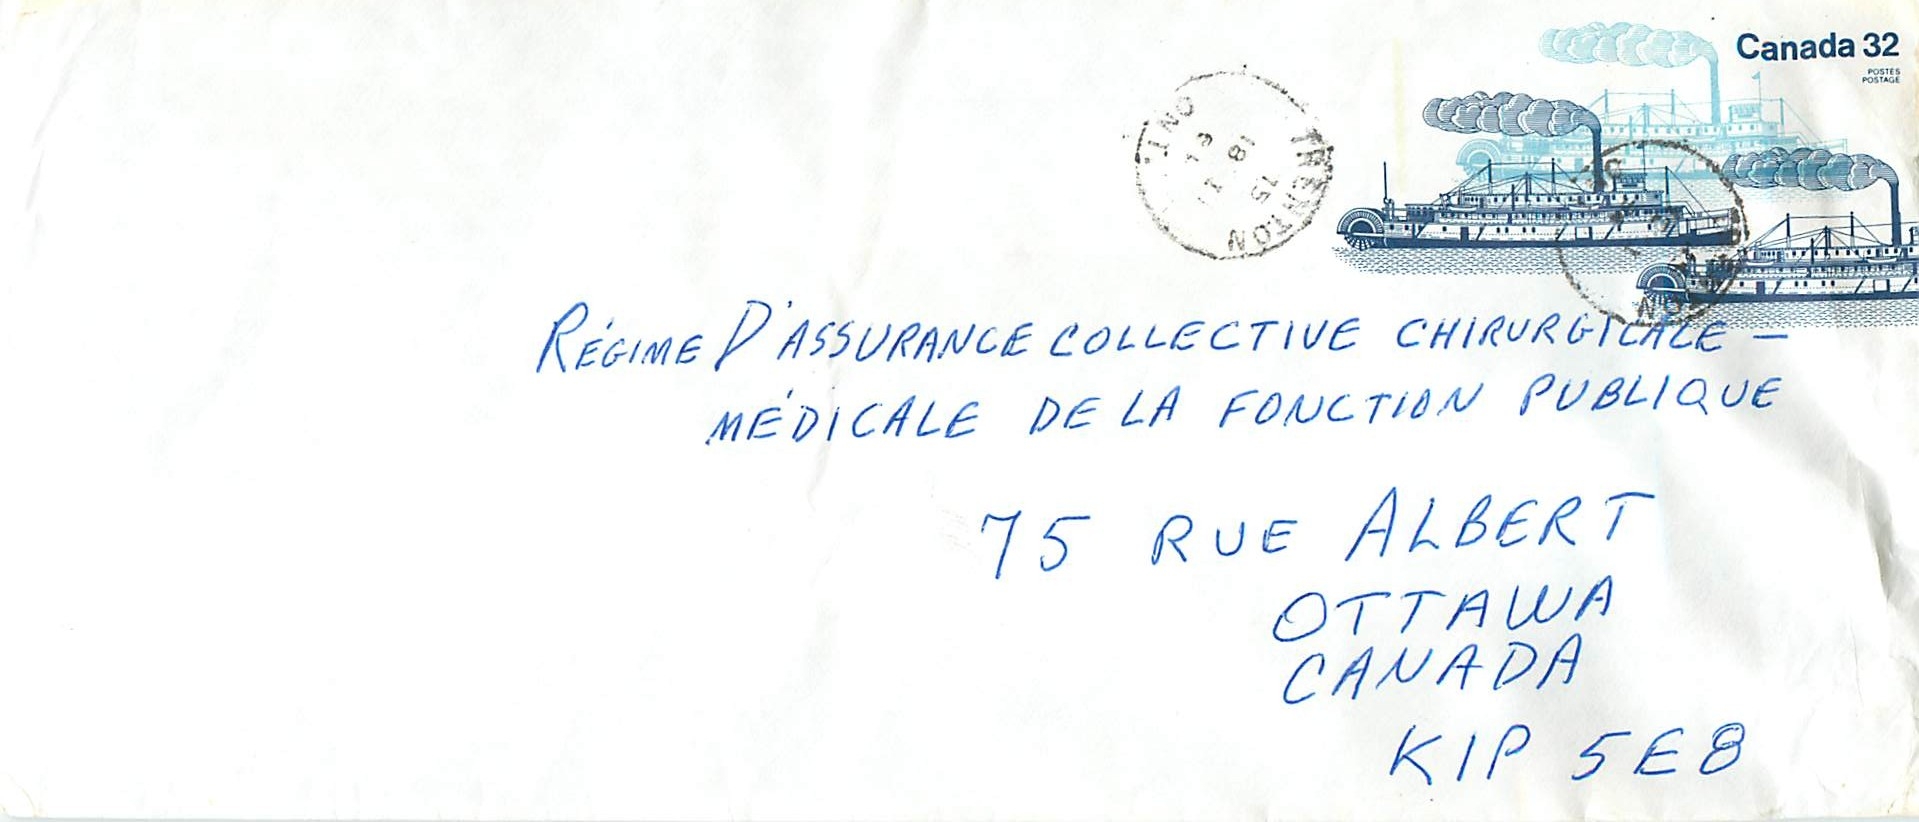 Canada 32
POSTES
POSTAGE
TRENTON
ONT.
15
RÉGIME D'ASSURANCE COLLECTIVE CHIRURGICALE –
MÉDICALE DE LA FONCTION PUBLIQUE
75 RUE ALBERT
OTTAWA
CANADA
K1P 5E8